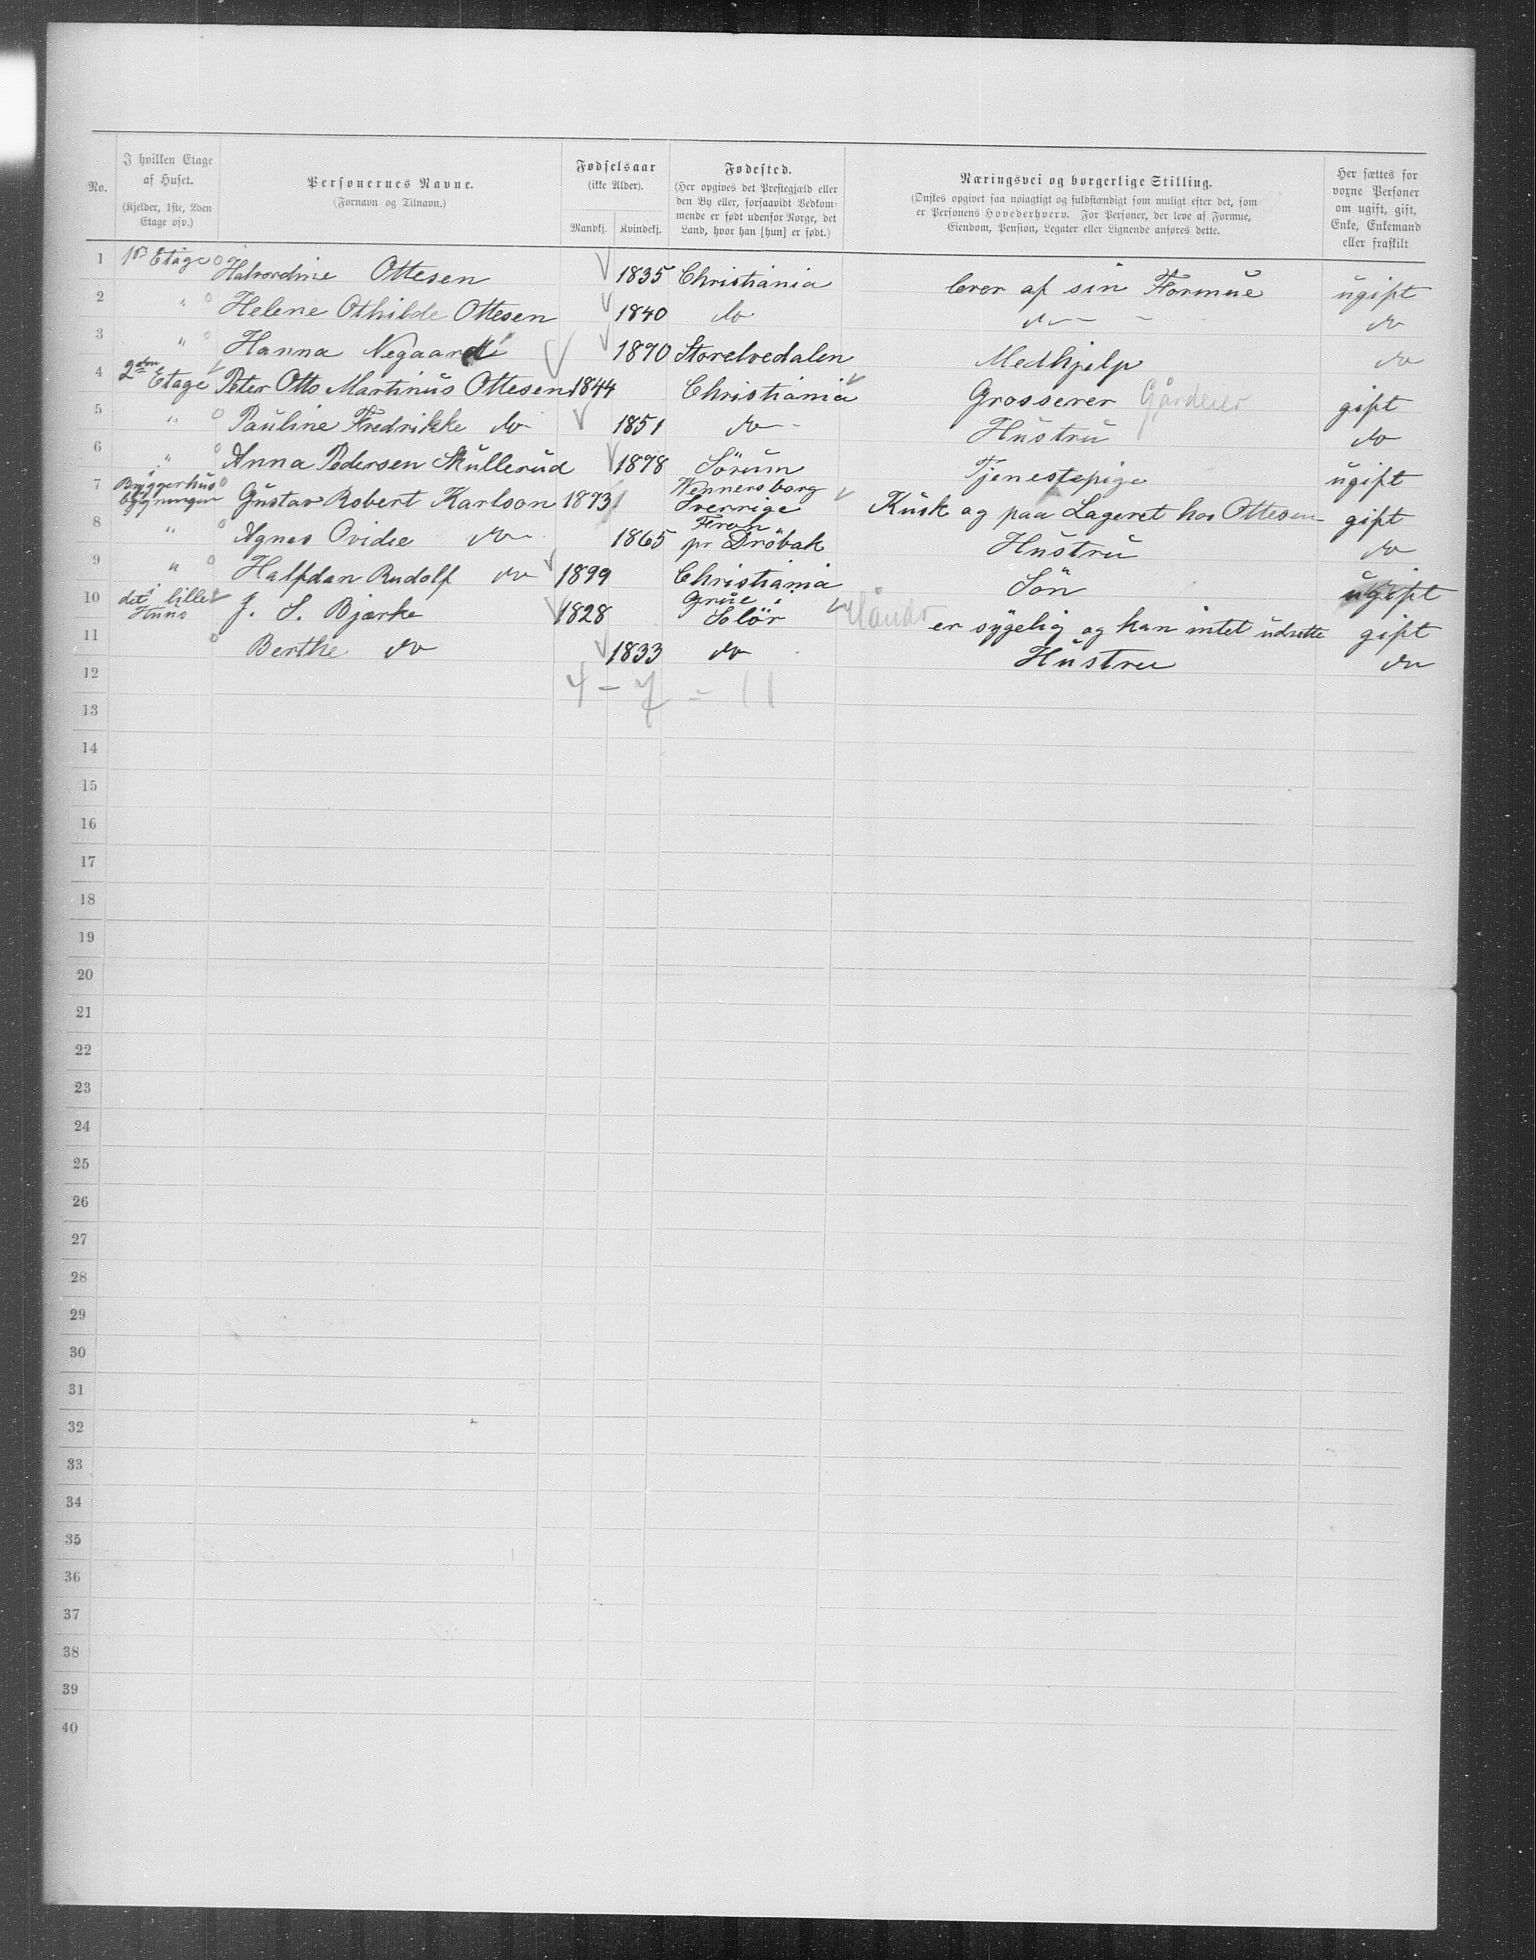 No.
I hvilken Etage af Huset.
(Kjelder, 1ste, 2den Etage osv.)
Personernes Navne.
(Fornavn og Tilnavn.)
Fødselsaar
(ikke Alder).
Mandkj. Kvindekj.
Fødested.
(Her opgives det Præstegjæld eller
den By eller, forsaavidt Vedkom-
mende er født udenfor Norge, det
Land, hvor han [hun] er født.)
Næringsvei og borgerlige Stilling.
(Ønskes opgivet saa nøiagtigt og fuldstændigt som muligt efter det, som
er Personens Hovederhverv. For Personer, der leve af Formue,
Eiendom, Pension, Legater eller Lignende anføres dette.
Her sættes for
voxne Personer
om ugift, gift,
Enke, Enkemand
eller fraskilt
1 1ste Etage Halvordine Ottesen 1835 Christiania lever af sin Formue ugift
2 " Helene Othilde Ottesen 1840 do do do
3 " Hanna Negaard 1870 Storelvedalen Medhjelp do
4 2den Etage Peter Otto Martinus Ottesen 1844 Christiania Grosserer Gårdeier gift
5 " Pauline Fredrikke do 1851 do Hustru do
6 " Anna Pedersen Skullerud 1878 Sörum Tjenestepige ugift
7 Bryggerhusbygningen Gustav Robert Karlson 1873 Wennersborg Sverrige Kusk og paa Lageret hos Ottesen gift
8 " Agnes Ovidie do 1865 Frogn pr Dröbak Hustru do
9 " Halfdan Rudolf do 1899 Christiania Sön ugift
10 i det lille Huus J. S. Bjærke 1828 Grue i Solör er sygelig og kan intet udrette gift
11 Berthe do 1833 do Hustru do
12 4 - 7 = 11
13
14
15
16
17
18
19
20
21
22
23
24
25
26
27
28
29
30
31
32
33
34
35
36
37
38
39
40